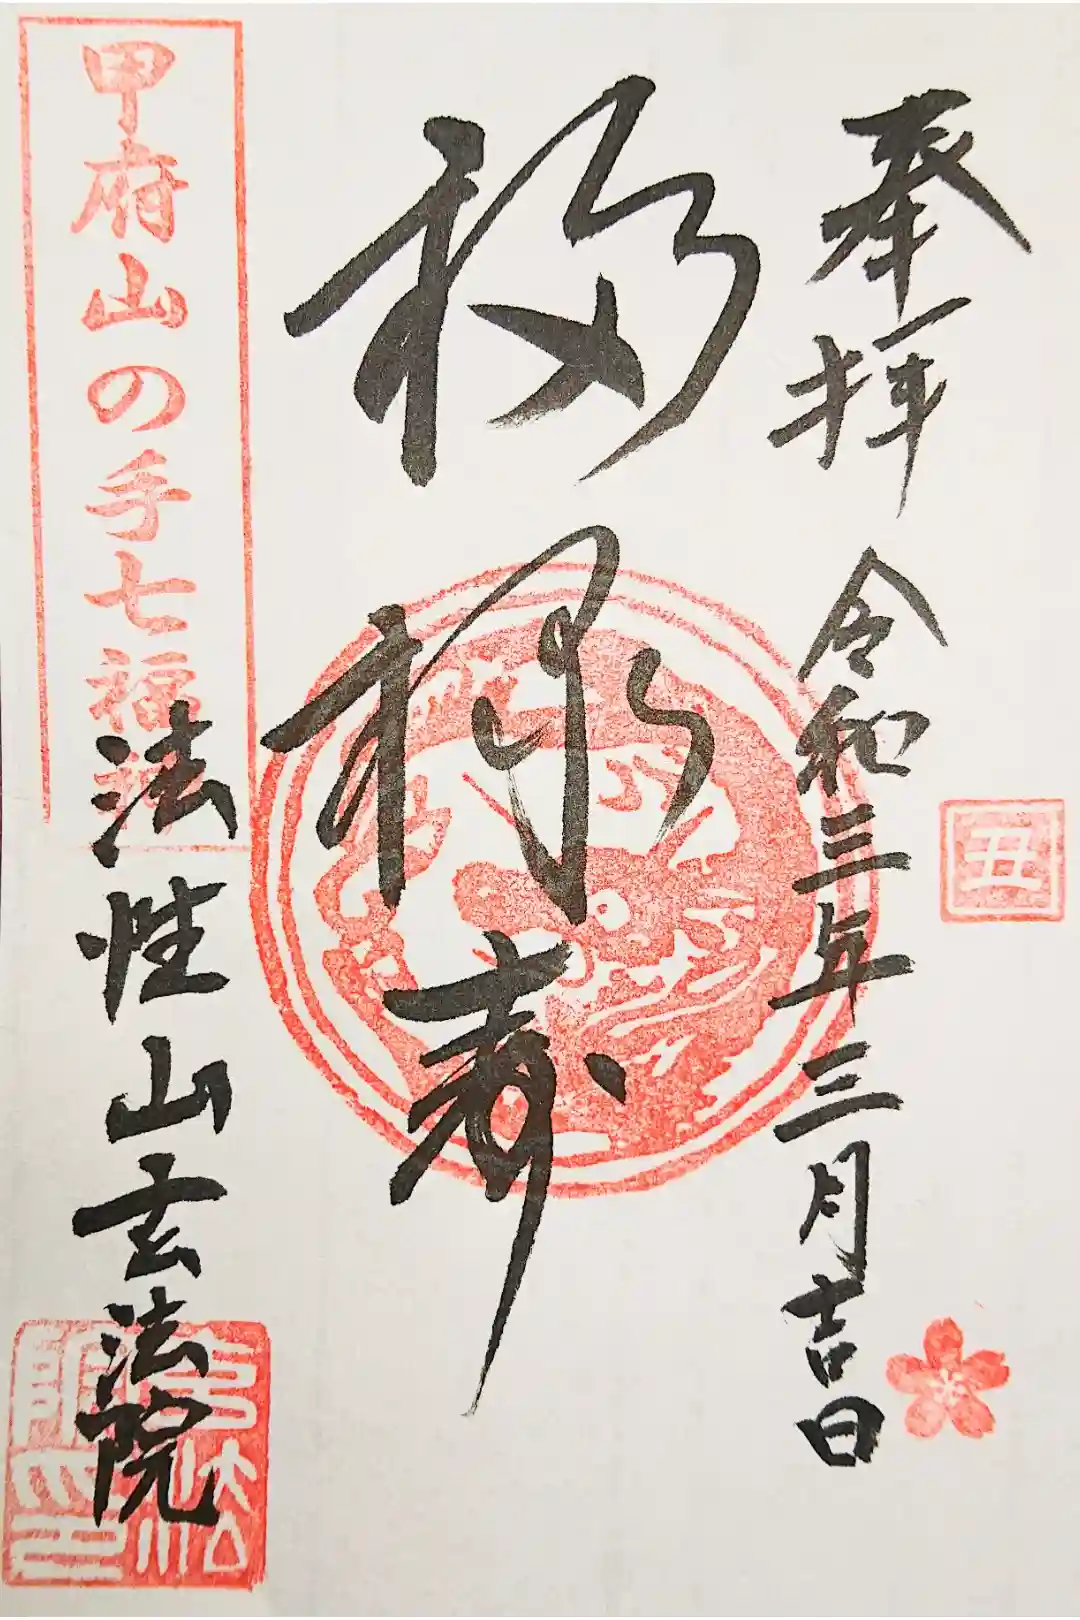 奉拝 令和三年三月吉日
丑
福禄寿
甲府山の手七福神
法性山玄法院